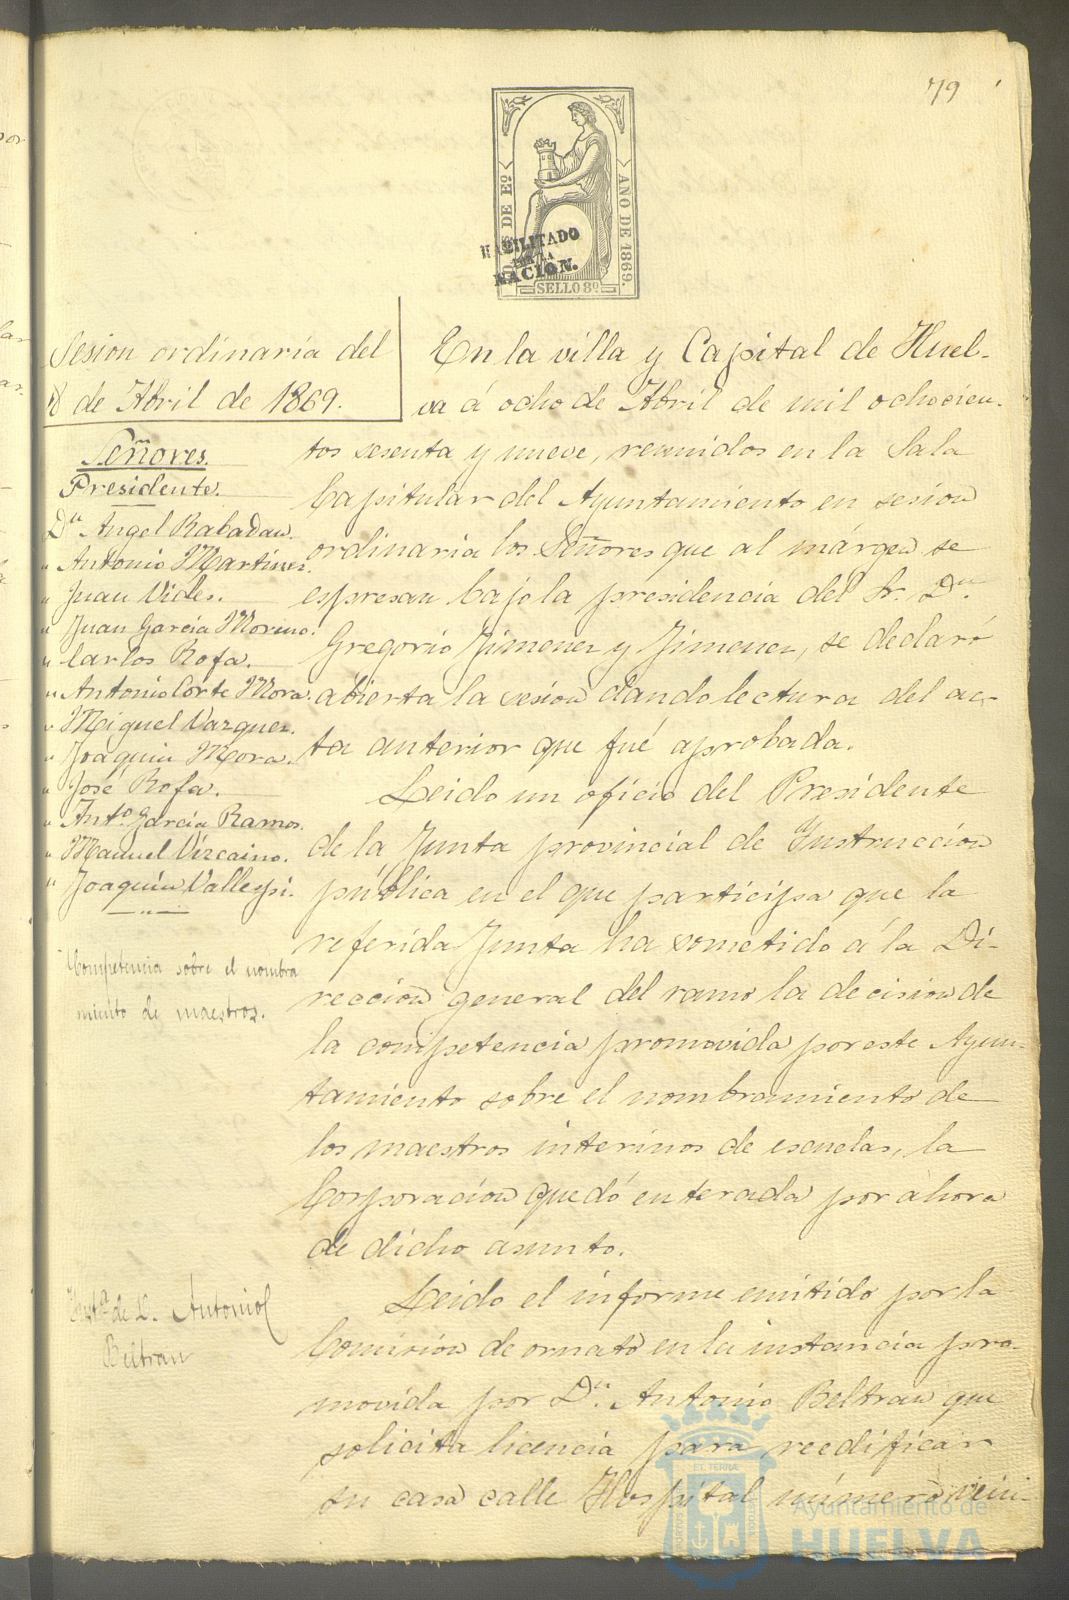 79
AÑO DE 1869.
SELLO 8º
HABILITADO
POR LA
NACION.
Sesion ordinaria del
8 de Abril de 1869.
Señores.
Presidente.
Dn Angel Rabadan.
" Antonio Martinez.
" Juan Vides.
" Juan García Moreno.
" Carlos Rofa.
" Antonio Corte Mora.
" Miguel Vazquez.
" Joaquin Mora.
" José Rofa.
" Antº García Ramos.
" Manuel Vizcaino.
" Joaquin Vallespi.
Competencia sobre el nombra
miento de maestros.
Instª de D. Antonio
Beltran
En la villa y Capital de Huel-
va á ocho de Abril de mil ochocien-
tos sesenta y nueve, reunidos en la Sala
Capitular del Ayuntamiento en sesion
ordinaria los Señores que al márgen se
espresan bajo la presidencia del Sr. Dn
Gregorio Jimenez y Jimenez, se declaró
abierta la sesion dando lectura del ac-
ta anterior que fué aprobada.
Leido un oficio del Presidente
de la Junta provincial de Instruccion
pública en el que participa que la
referida Junta ha sometido á la Di-
reccion general del ramo la decision de
la competencia promovida por este Ayun-
tamiento sobre el nombramiento de
los maestros interinos de escuelas, la
Corporacion quedó enterada por ahora
de dicho asunto.
Leido el informe emitido por la
Comision de ornato en la instancia pro-
movida por Dn. Antonio Beltran que
solicita licencia para reedificar
su casa calle Hospital número vein-
Ayuntamiento de
HUELVA